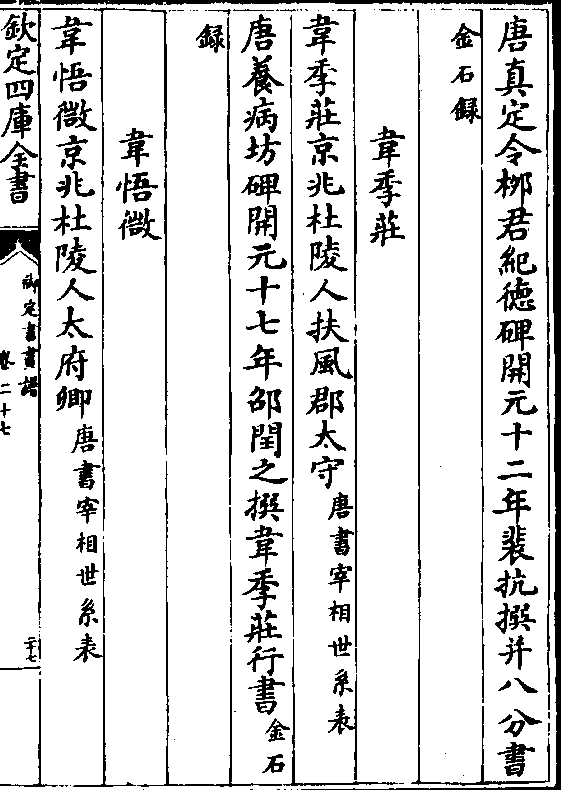 唐真定令栁君紀德碑開元十二年裴抗撰并八分書
金石録
韋季莊
韋季莊京兆杜陵人扶風郡太守唐書宰相世系表
唐養病坊碑開元十七年邵閏之撰韋季莊行書金石
録
韋悟微
韋悟微京兆杜陵人太府卿唐書宰相世系表
欽定四庫全書
御定書畫譜
卷二十七
二十七